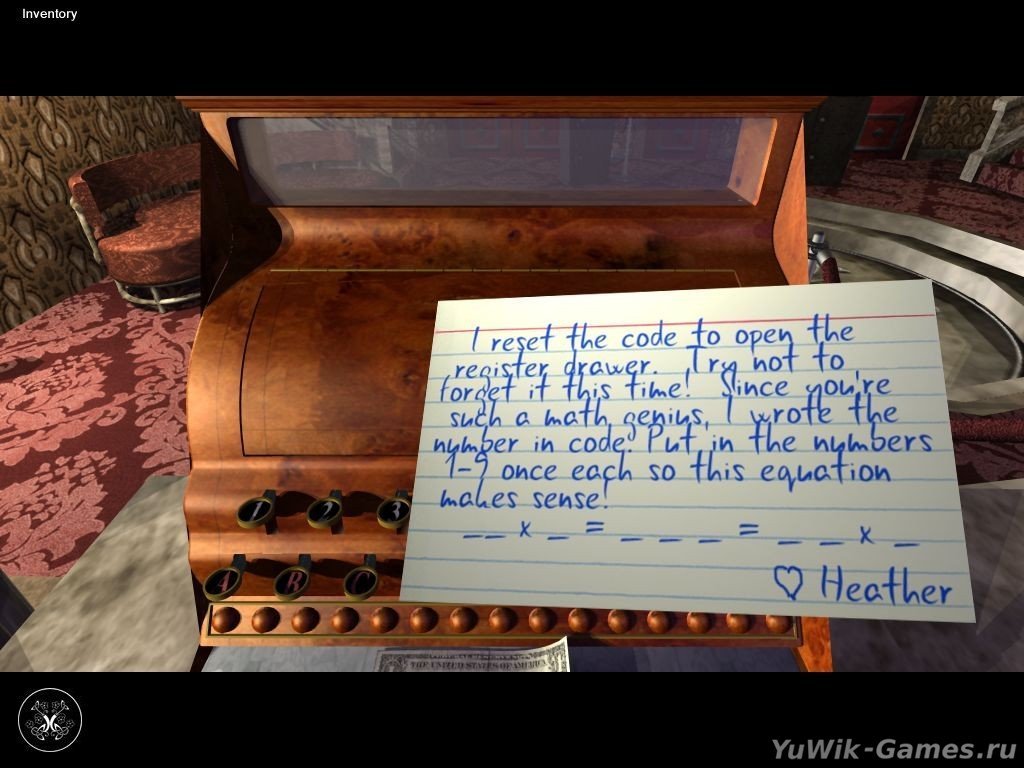 Inventory
I reset the code to open the
register drawer. Try not to
forget it this time! Since you're
such a math genius, I wrote the
number in code. Put in the numbers
1-9 once each so this equation
makes sense!
_ _ x _ = _ _ _ = _ _ x _
♡ Heather
1 2 3
A B C
THE UNITED STATES OF AMERICA
YuWik-Games.ru